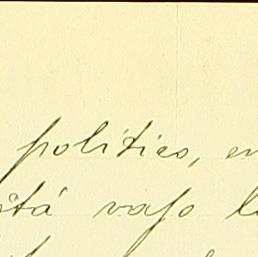 político, en
stá vajo l